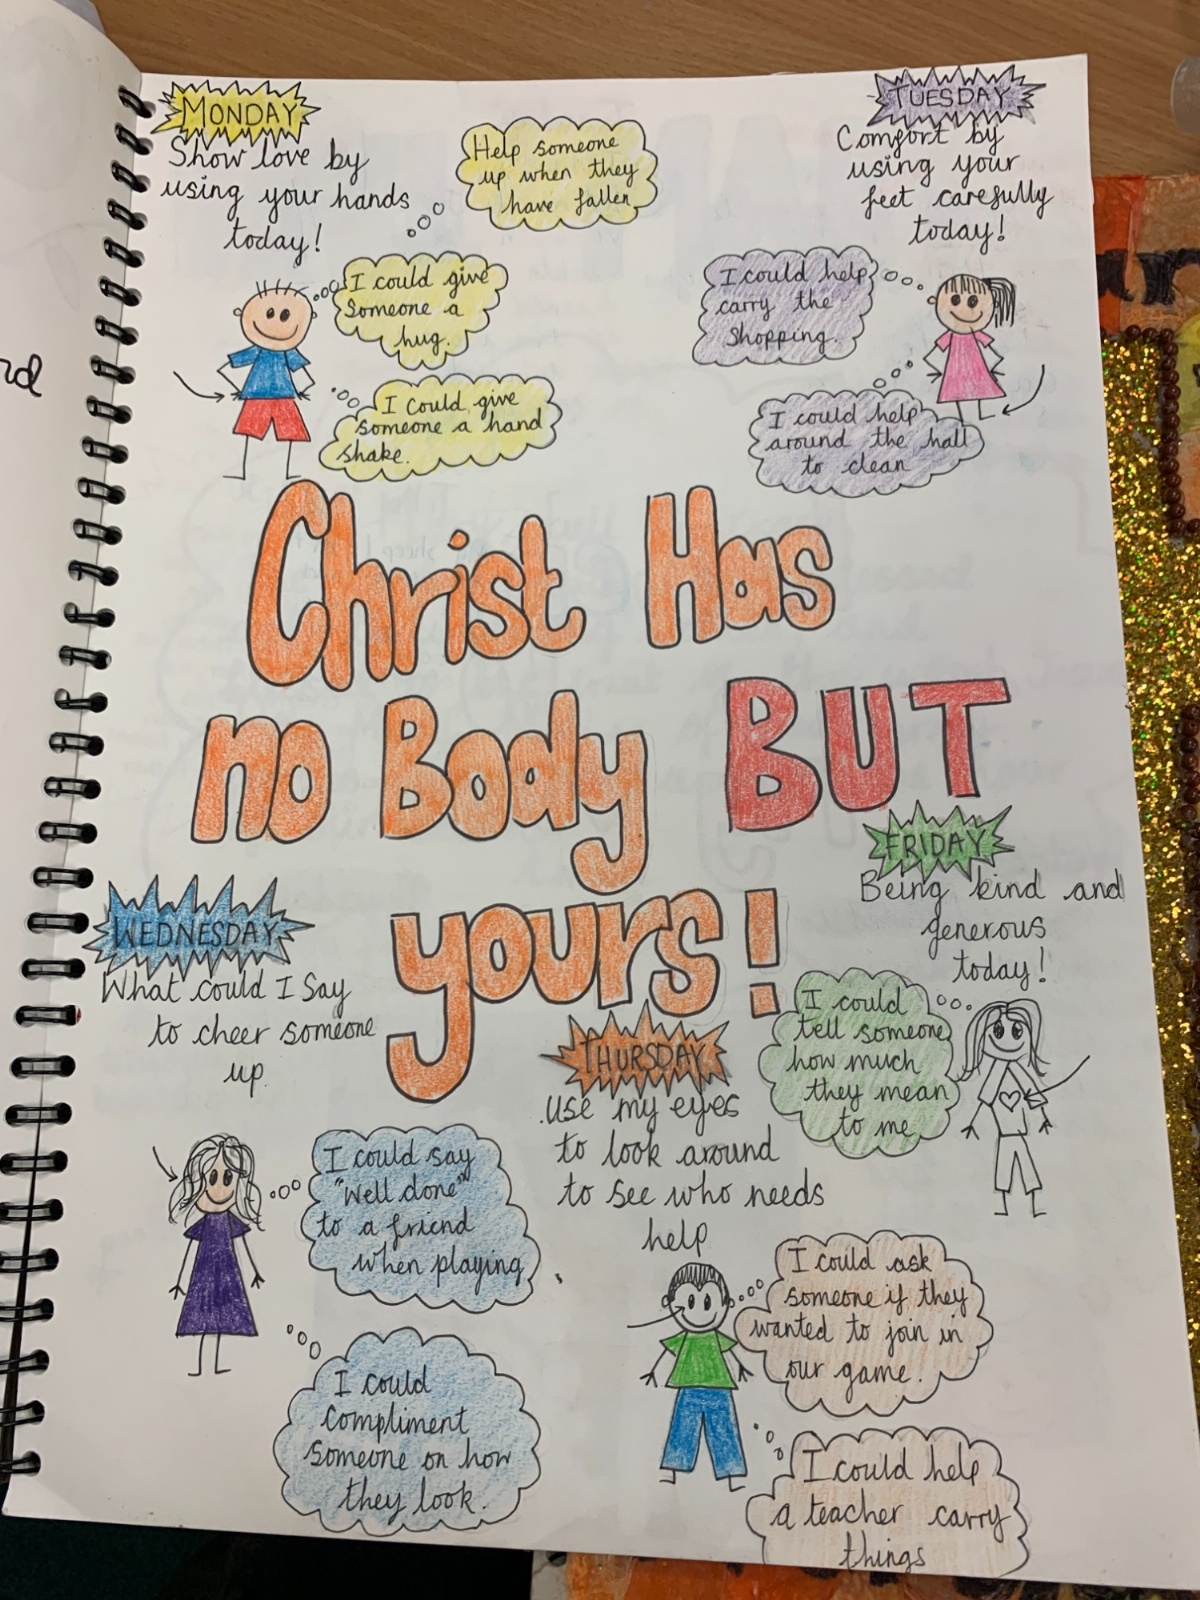 MONDAY
Show love by
using your hands
today!
Help someone
up when they
have fallen
I could give
someone a
hug.
I could give
someone a hand
shake.
TUESDAY
Comfort by
using your
feet carefully
today!
I could help
carry the
shopping.
I could help
around the hall
to clean
rd
Christ Has
no Body BUT
yours!
WEDNESDAY
What could I Say
to cheer someone
up.
I could say
"Well done"
to a friend
when playing
I could
compliment
someone on how
they look.
THURSDAY
use my eyes
to look around
to see who needs
help
I could ask
someone if they
wanted to join in
our game.
I could help
a teacher carry
things
FRIDAY
Being kind and
generous
today!
I could
tell someone
how much
they mean
to me